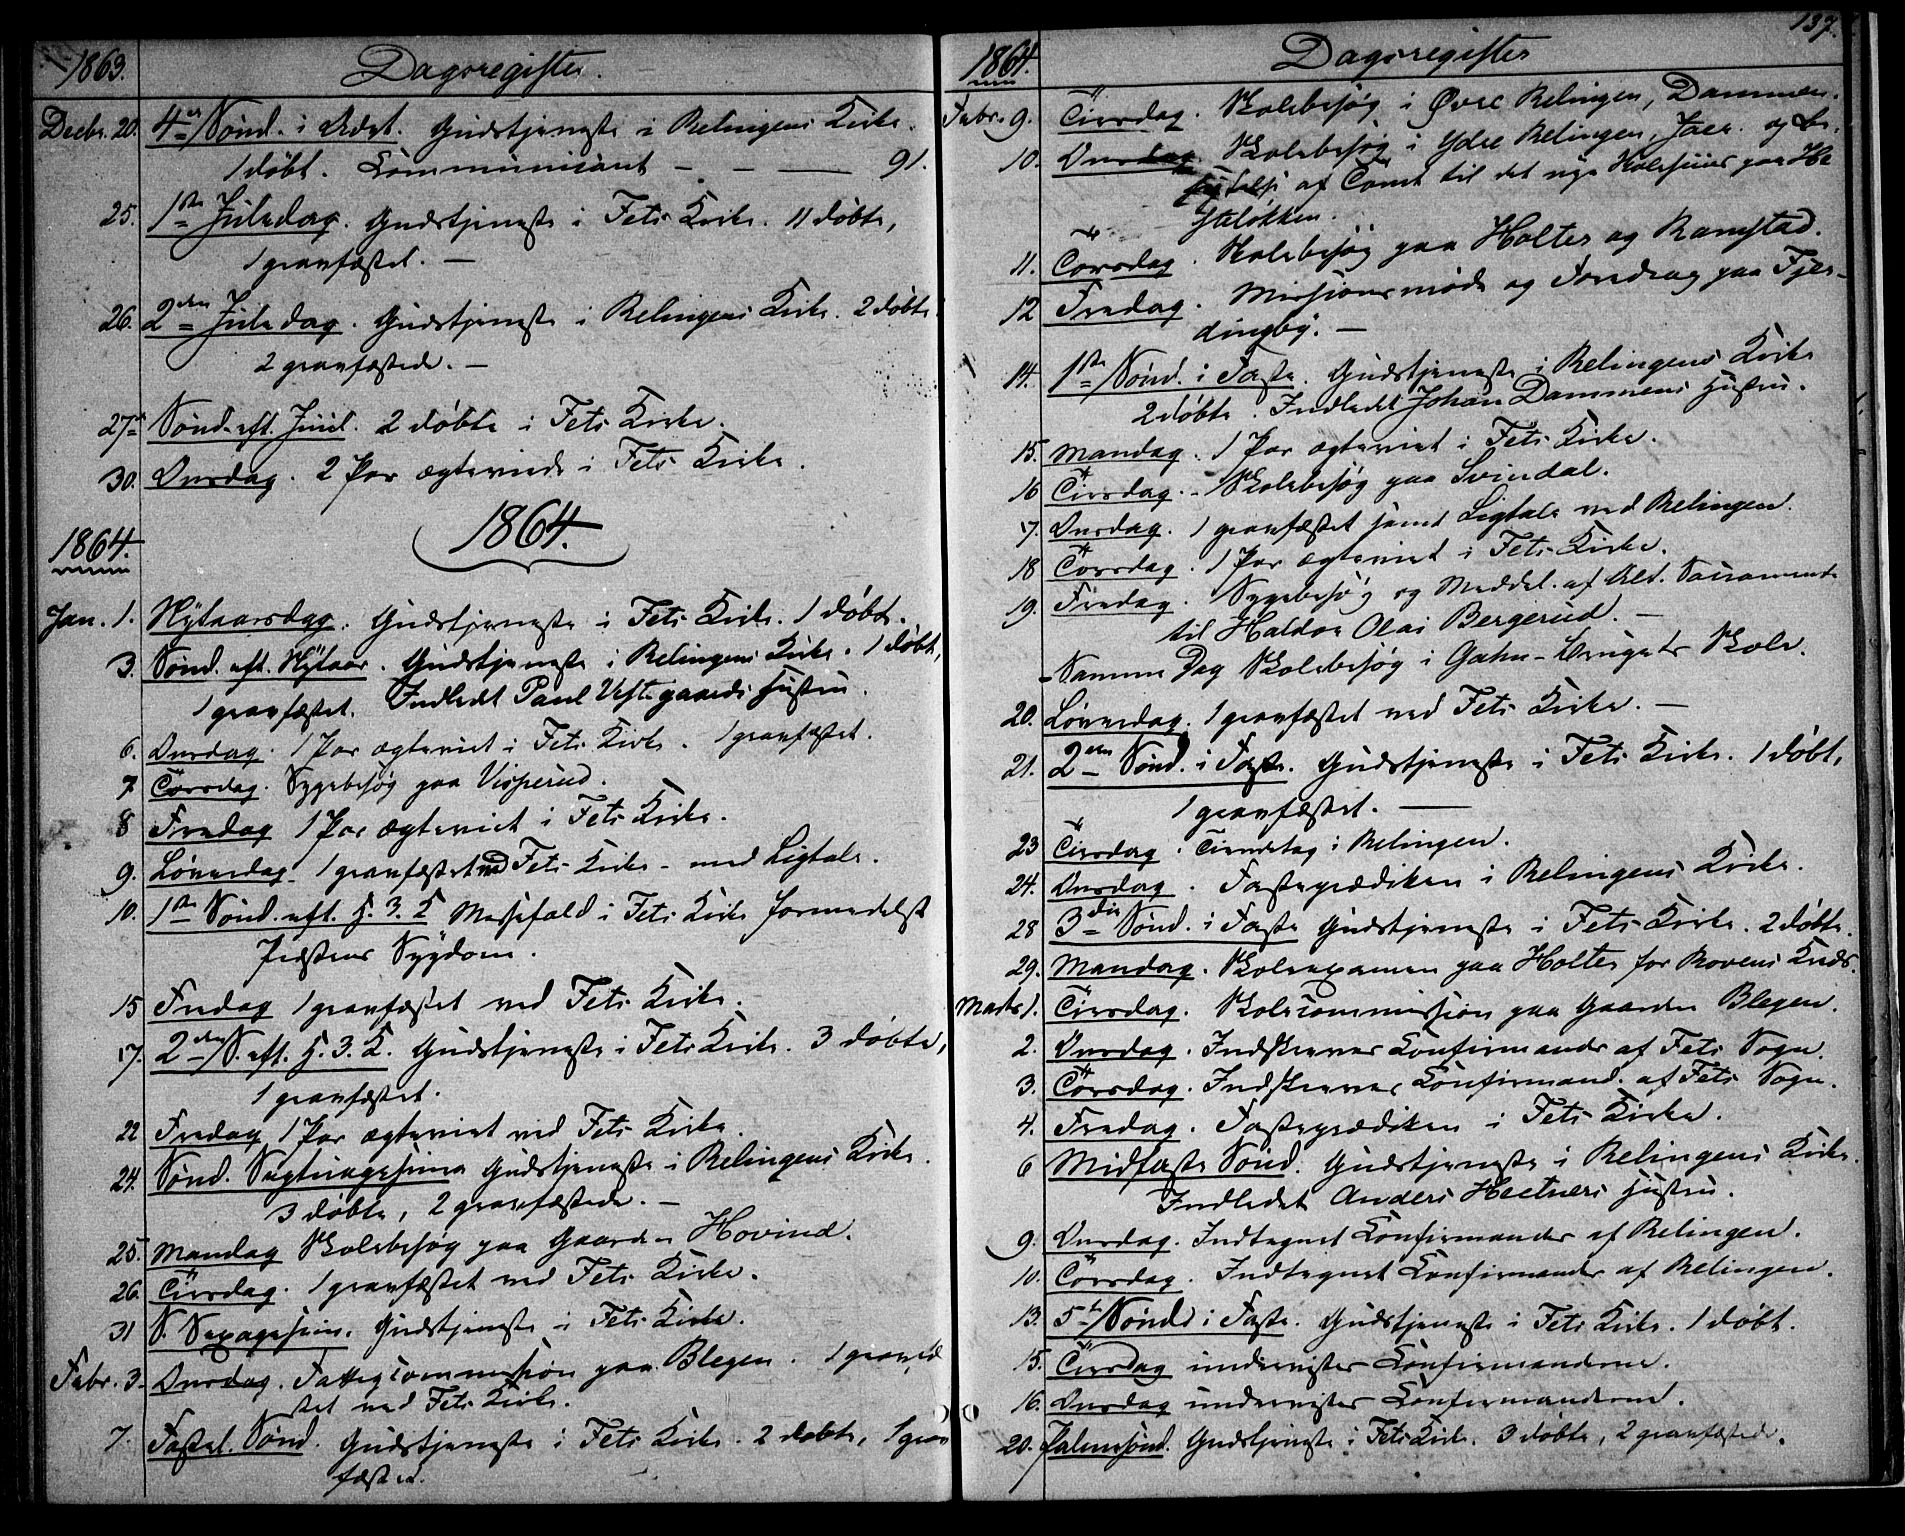 1863. Dagsregister.
Decbr. 20. 4de Sönd. i Advt. Gudstjeneste i Relingens Kirke.
1 döbt. Communicant - - — 91.
25. 1ste Juledag. Gudstjeneste i Fets Kirke. 11 döbte,
1 gravfæstet. —
26. 2den Juledag. Gudstjeneste i Relingens Kirke. 2 döbte
2 gravfæstede. —
27de Sönd. eft. Juul. 2 döbte i Fets Kirke.
30. Onsdag. 2 Par ægteviede i Fets Kirke.
1864. 1864.
Jan. 1. Nÿtaarsdag. Gudstjeneste i Fets Kirke. 1 döbt.
3. Sönd. eft. Nÿtaar. Gudstjeneste i Relingens Kirke. 1 döbt,
1 gravfæstet. Indledt Paul Vestegaards Hustru.
6. Onsdag. 1 Par ægteviet i Fets Kirke. 1 gravfæstet.
7 Torsdag. Sygebesög paa Visperud.
8 Fredag 1 Par ægteviet i Fets Kirke.
9. Löverdag 1 gravfæstet ved Fets Kirke - med Ligtale.
10. 1ste Sönd. eft. H. 3. K Messefald i Fets Kirke formedelst
Præstens Sygdom.
15 Fredag 1 gravfæstet ved Fets Kirke.
17. 2den S. eft. H. 3. K. Gudstjeneste i Fets Kirke. 3 döbte,
1 gravfæstet.
22 Fredag 1 Par ægteviet ved Fets Kirke.
24. Sönd. Septuagesima Gudstjeneste i Relingens Kirke.
3 döbte, 2 gravfæstede. —
25. Mandag Skolebesög paa Gaarden Hovind.
26. Tirsdag. 1 gravfæstet ved Fets Kirke.
31 S. Sexagesim. Gudstjeneste i Fets Kirke.
Febr. 3. Onsdag. Fattigcommission paa Blegen. 1 gravfæ
stet ved Fets Kirke.
7. Fastel. Sönd. Gudstjeneste i Fets Kirke. 2 döbte, 1 grav
fæstet.
137.
1864. Dagsregister
Febr. 9. Tirsdag. Skolebesög i Øvre Relingen, Dammen.
10. Onsdag Skolebesög i Ydre Relingen, Jaer. og be-
sigtelse af Tomt til det nye Skolehuus paa He
stelökken.
11. Torsdag. Skolebesög paa Holter og Ramstad.
12 Fredag. Missionsmöde og Foredrag paa Fjer-
dingby. —
14. 1ste Sönd. i Faste. Gudstjeneste i Relingens Kirke
2 döbte. Indledet Johan Dammens Hustru.
15. Mandag. 1 Par ægteviet i Fets Kirke.
16 Tirsdag. - Skolebesög paa Svindal.
17. Onsdag. 1 gravfæstet samt Ligtale ved Relingen.
18 Torsdag. 1 Par ægteviet i Fets Kirke.
19. Fredag. Sygebesög og Meddel. af Alt. Sacramente
til Haldor Olai Bergerud. —
- Samme Dag Skolebesög i Gahn- Skole.
20. Löverdag. 1 gravfæstet ved Fets Kirke. —
21. 2den Sönd. i Faste. Gudstjeneste i Fets Kirke. 1 döbt,
1 gravfæstet. —
23 Tirsdag. Tiendetag i Relingen.
24. Onsdag. Fasteprædiken i Relingens Kirke.
28 3die Sönd. i Faste Gudstjeneste i Fets Kirke. 2 döbte.
29. Mandag. Skoleexamen paa Holter for Rovens Kreds.
Marts 1. Tirsdag. Skolecommission paa Gaarden Blegen.
2. Onsdag. Indskrevet Confirmander af Fets Sogn.
3. Torsdag. Indskrevet Confirmand. af Fets Sogn.
4. Fredag. Fasteprædiken i Fets Kirke.
6 Midfaste Sönd. Gudstjeneste i Relingens Kirke.
Indledet Anders Hectners Hustru.
9. Onsdag. Indtegnet Confirmander af Relingen.
10. Torsdag. Indtegnet Confirmander af Relingen.
13. 5te Sönd. i Faste. Gudstjeneste i Fets Kirke. 1 döbt.
15. Tirsdag underviser Confirmanderne.
16. Onsdag underviser Confirmanderne.
20. Palmesönd. Gudstjeneste i Fets Kirke. 3 döbte, 2 gravfæstede.